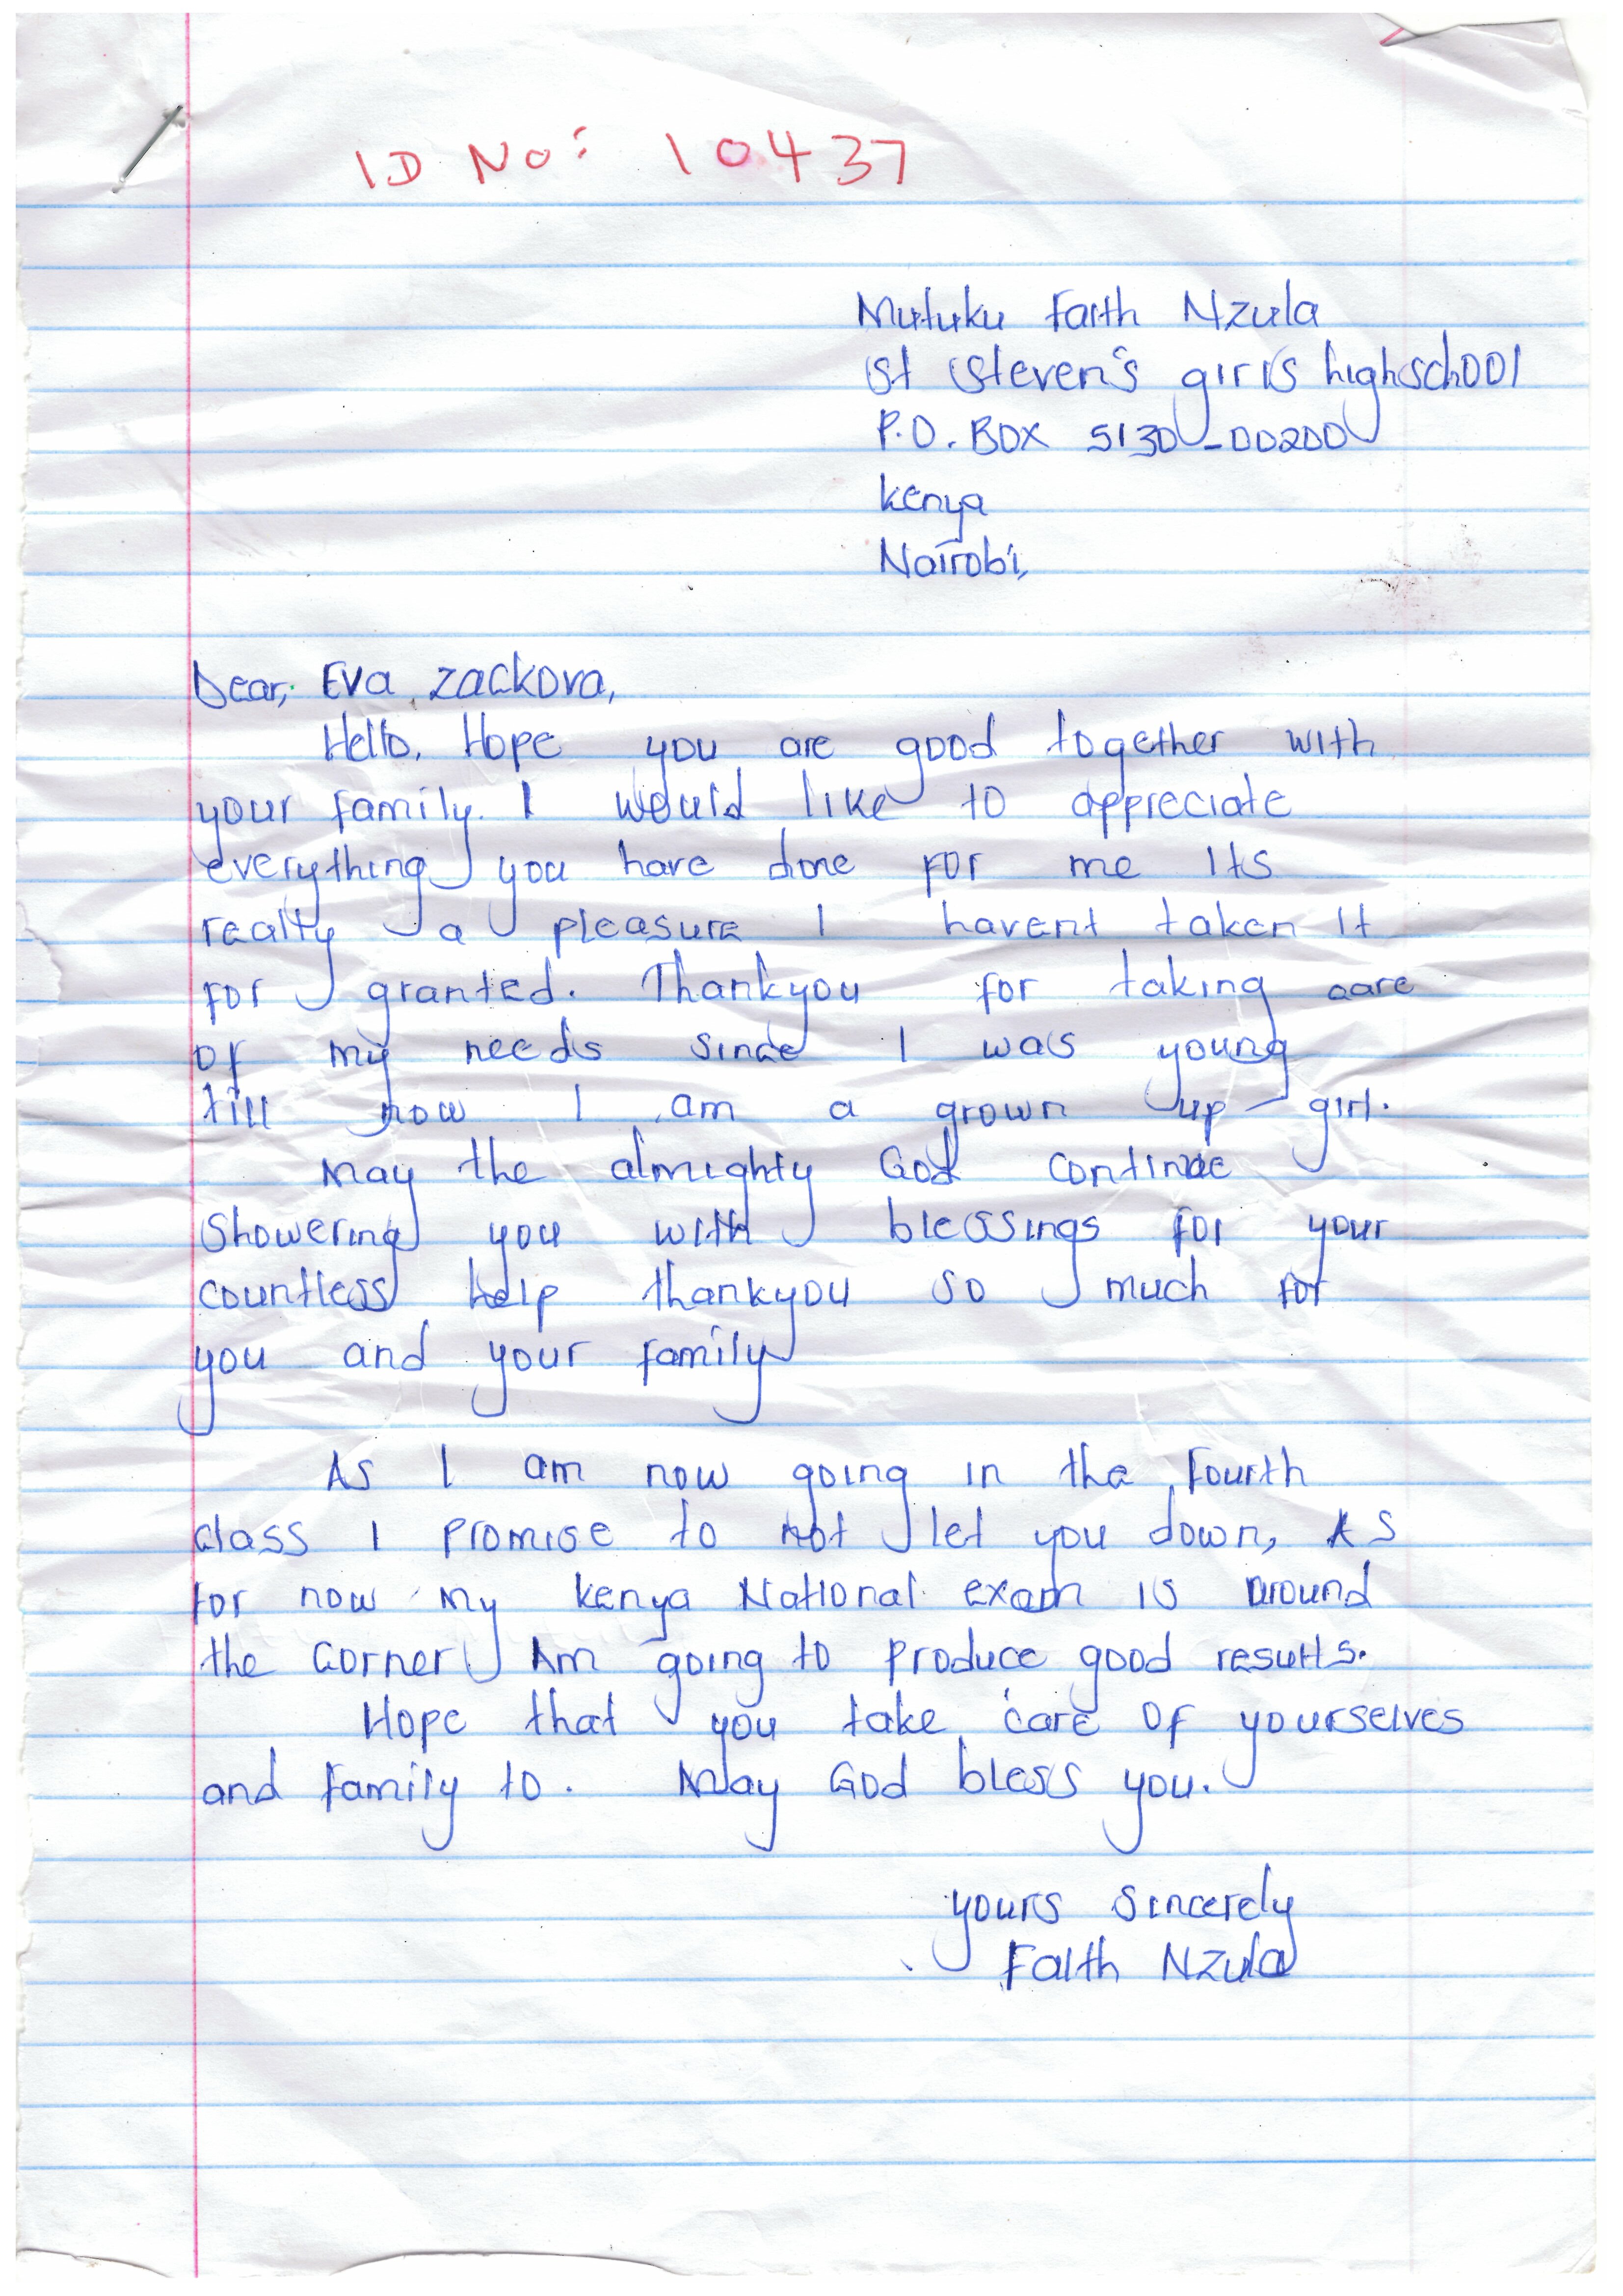 ID No: 10437
Mutuku Faith Nzula
St Steven's girls highschool
P.O. BOX 5130-00200
Kenya
Nairobi,
Dear, Eva Zackova,
Hello. Hope you are good together with
your family. I would like to appreciate
everything you have done for me Its
really a pleasure I havent taken It
for granted. Thankyou for taking care
of my needs since I was young
till now I am a grown up girl.
May the almighty God continue
Showering you with blessings for your
countless help thankyou so much for
you and your family
As I am now going in the fourth
class I promise to not let you down, As
for now my Kenya National exam is around
the corner Am going to produce good results.
Hope that you take care of yourselves
and family to. May God bless you.
yours sincerely
Faith Nzula